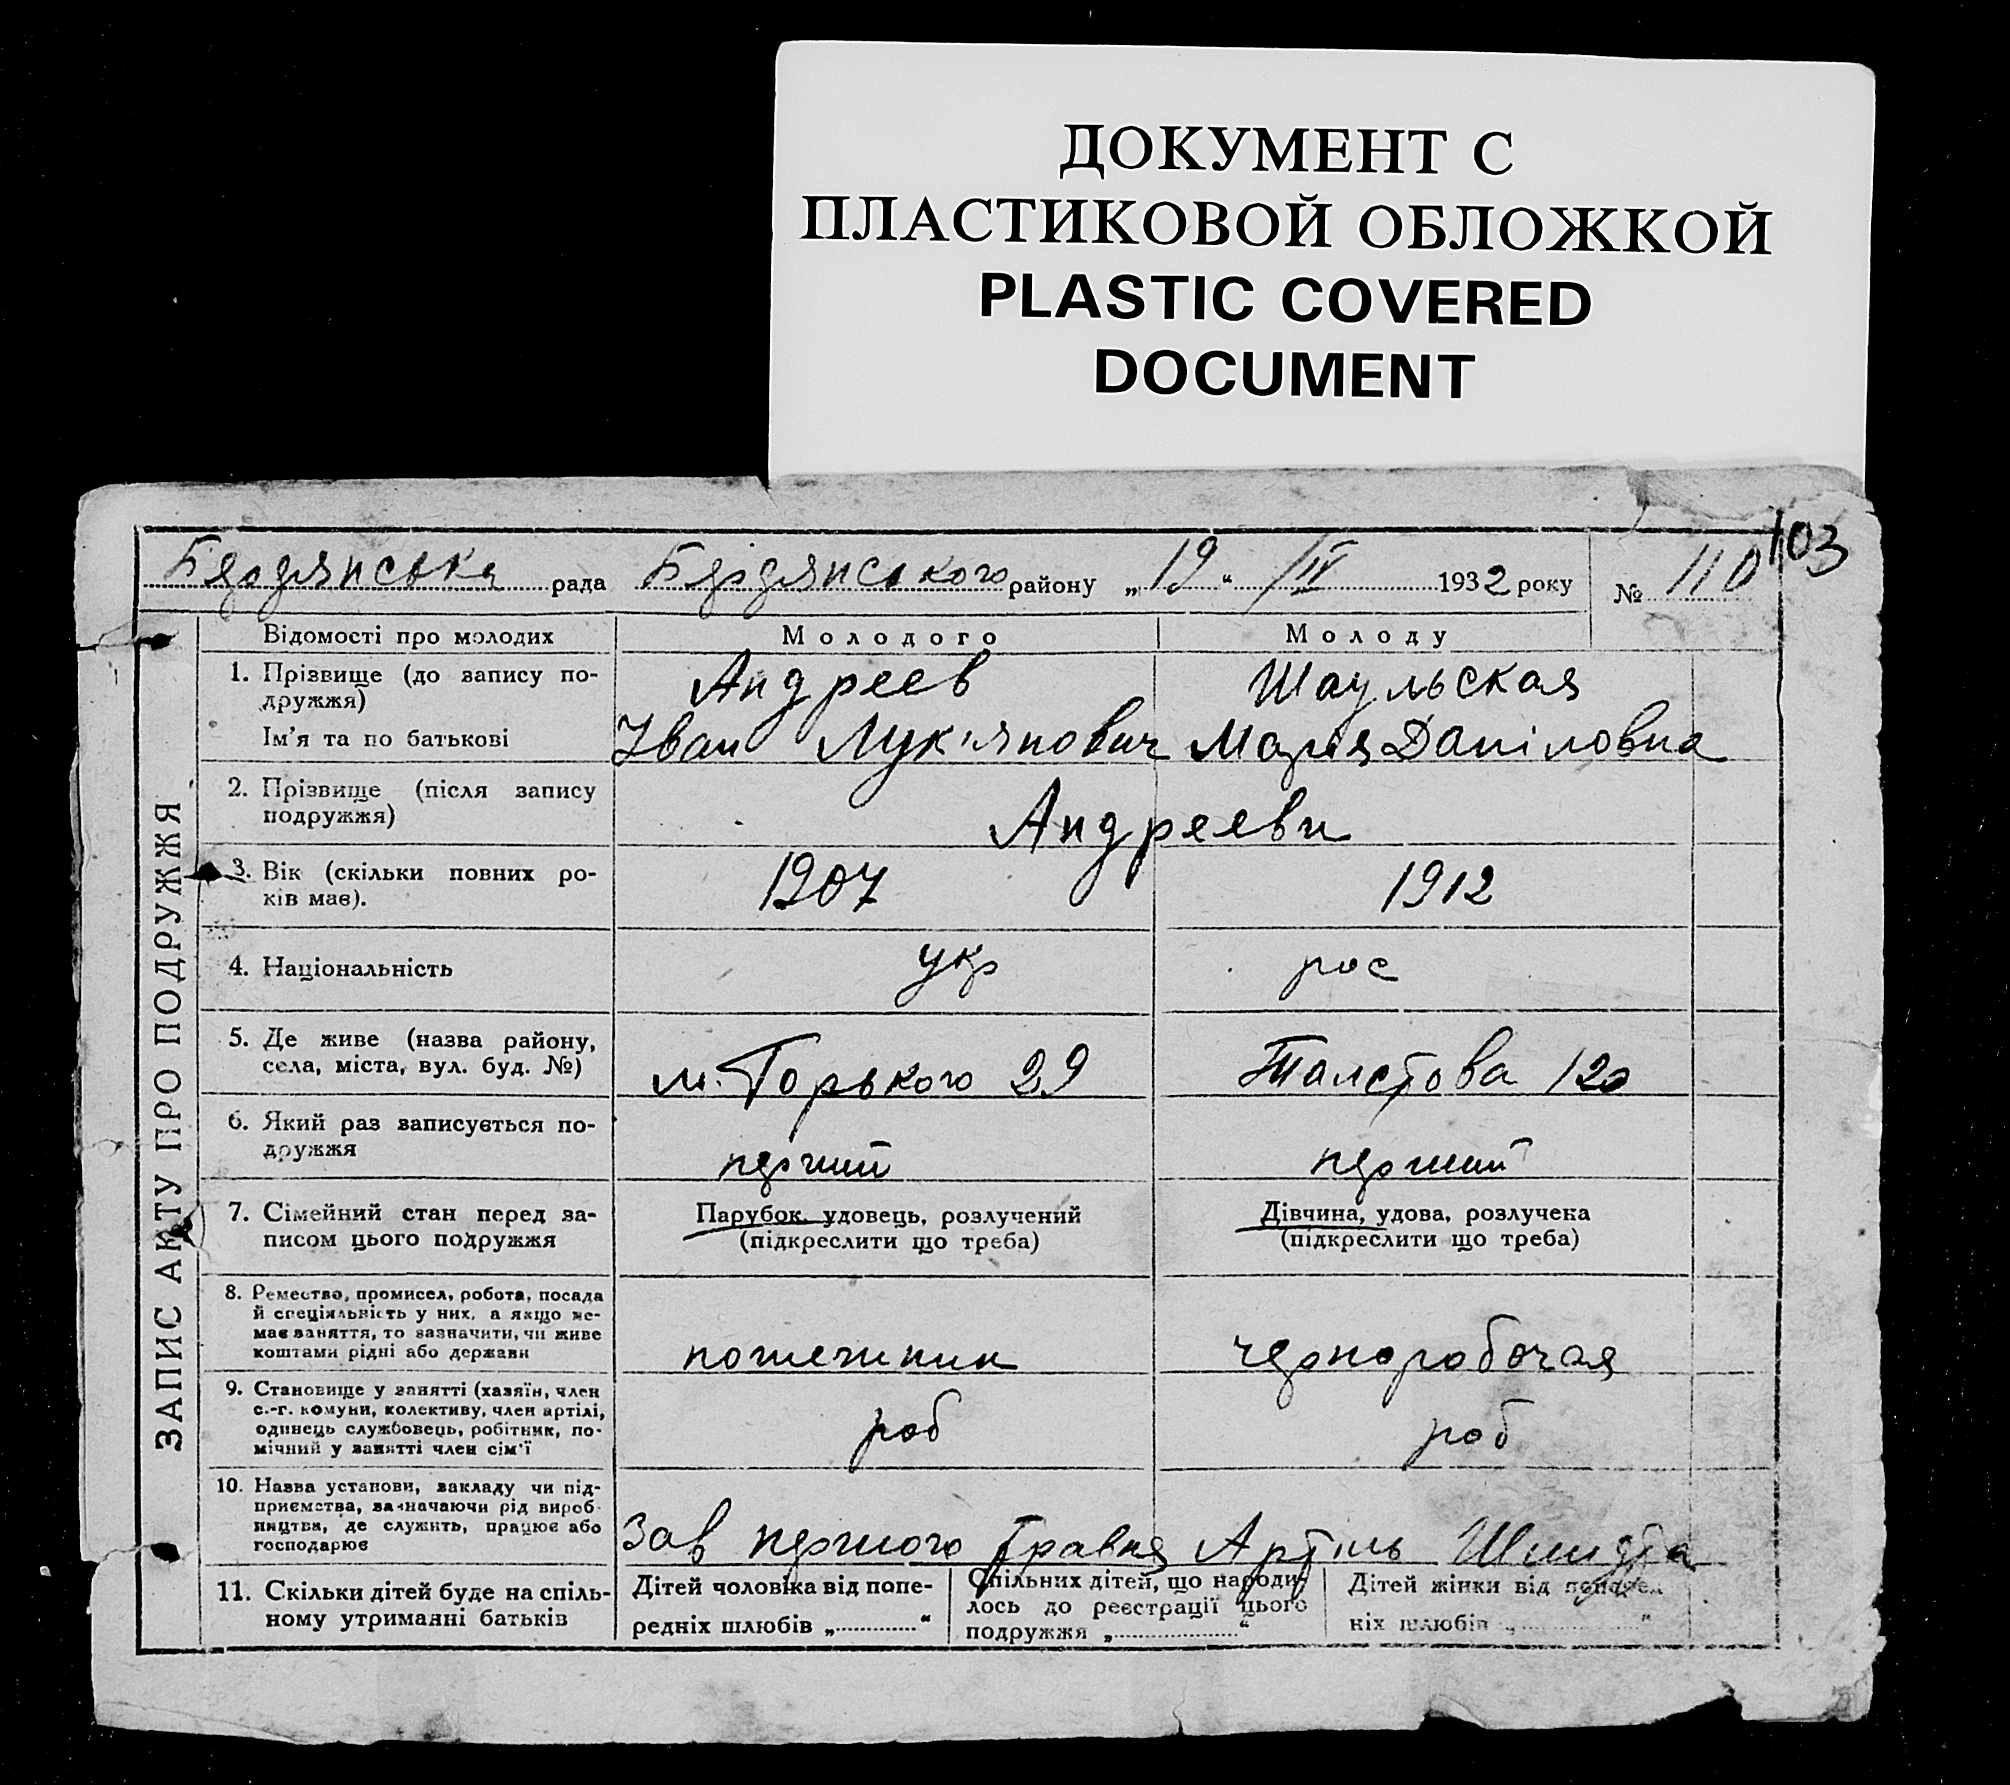 ДОКУМЕНТ С
ПЛАСТИКОВОЙ ОБЛОЖКОЙ
PLASTIC COVERED
DOCUMENT
103
Бердянська рада Бердянського району „19“ IV 1932 року № 110
ЗАПИС АКТУ ПРО ПОДРУЖЖЯ
Відомості про молодих Молодого Молоду
1. Прізвище (до запису по-
дружжя) Андреев Шаульская
Ім'я та по батькові Іван Лук'янович Марія Даніловна
2. Прізвище (після запису
подружжя) Андреєви
3. Вік (скільки повних ро-
ків має). 1907 1912
4. Національність укр рос
5. Де живе (назва району,
села, міста, вул. буд. №) м. Горького 29 Толстова 120
6. Який раз записується по-
дружжя перший перший
7. Сімейний стан перед за-
писом цього подружжя
Парубок, удовець, розлучений
(підкреслити що треба)
Дівчина, удова, розлучена
(підкреслити що треба)
8. Ремество, промисел, робота, посада
й спеціяльність у них, а якщо не-
має заняття, то зазначити, чи живе
коштами рідні або держави чернорабочая
9. Становище у занятті (хазяїн, член
с.-г. комуни, колективу, член артілі,
одинець службовець, робітник, по-
мічний у занятті член сім'ї роб роб
10. Назва установи, закладу чи під-
приємства, зазначаючи рід вироб-
ництва, де служить, працює або
господарює Зав першого Травня Артиль Шмидта
11. Скільки дітей буде на спіль-
ному утриманні батьків
Дітей чоловіка від попе-
редніх шлюбів „ “
Спільних дітей, що народи-
лось до реєстрації цього
подружжя „ “
Дітей жінки від поперед-
ніх шлюбів „ “